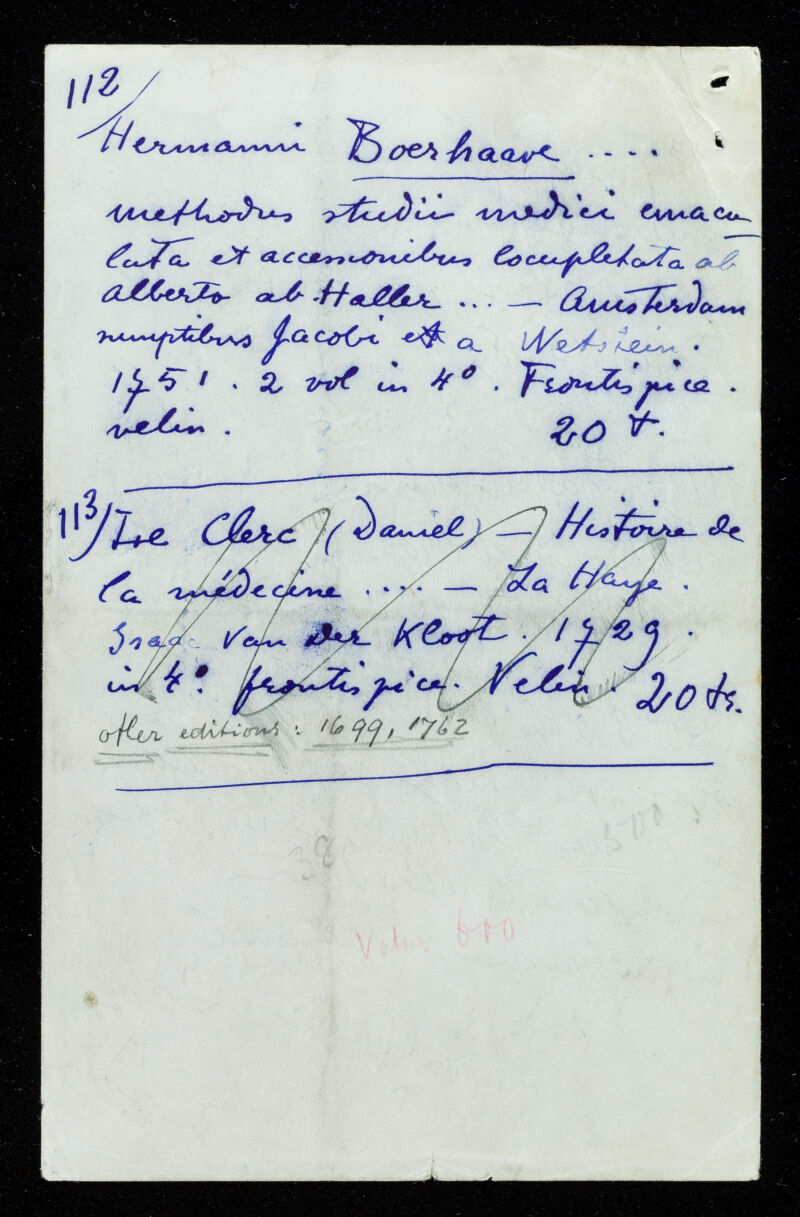 112/
Hermanni Boerhaave ....
methodus studii medici emacu-
lata et accessionibus locupletata ab
Alberto ab Haller ... — Amsterdam
sumptibus Jacobi et a Wetstein.
1751. 2 vol in 4°. Frontispice.
velin. 20 f.
113/ Le Clerc (Daniel) — Histoire de
la médecine .... — La Haye.
Isaac Van der Kloot. 1729.
in 4°. frontispice. Velin. 20 fr.
other editions: 1699, 1762
500
38
Valeur 600